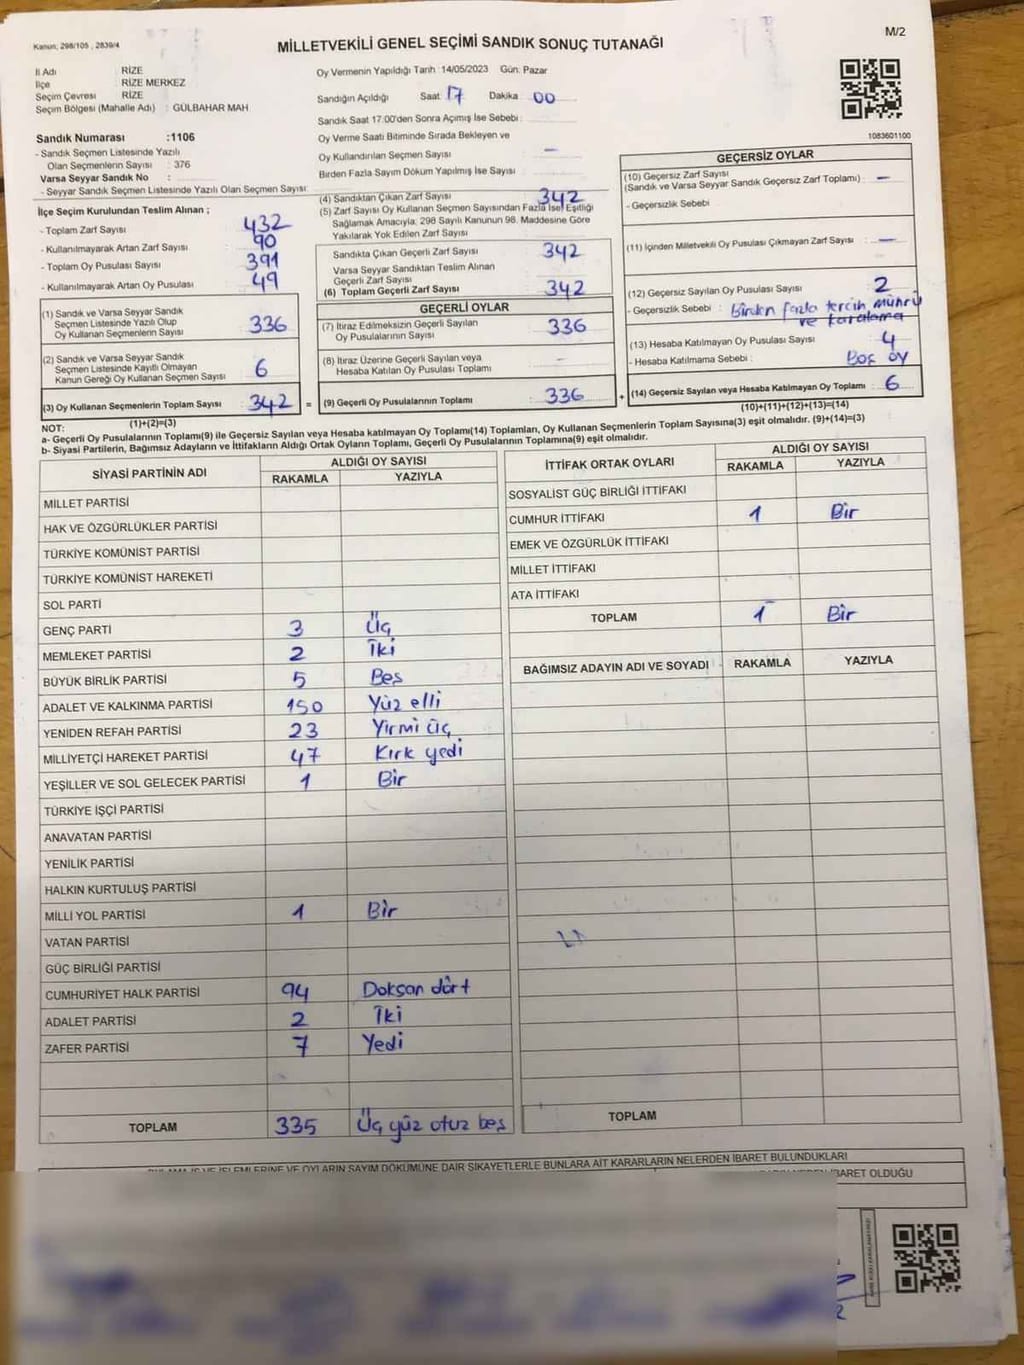 Kanun; 298/105 , 2839/4
MİLLETVEKİLİ GENEL SEÇİMİ SANDIK SONUÇ TUTANAĞI
M/2
İl Adı : RİZE
İlçe : RİZE MERKEZ
Seçim Çevresi : RİZE
Seçim Bölgesi (Mahalle Adı) : GÜLBAHAR MAH
Sandık Numarası :1106
- Sandık Seçmen Listesinde Yazılı
Olan Seçmenlerin Sayısı : 376
Varsa Seyyar Sandık No :
- Seyyar Sandık Seçmen Listesinde Yazılı Olan Seçmen Sayısı:
Oy Vermenin Yapıldığı Tarih :14/05/2023 Gün: Pazar
Sandığın Açıldığı Saat 17 Dakika 00
Sandık Saat 17:00'den Sonra Açımış İse Sebebi :
Oy Verme Saati Bitiminde Sırada Bekleyen ve
Oy Kullandırılan Seçmen Sayısı : —
Birden Fazla Sayım Döküm Yapılmış İse Sayısı :
1083601100
İlçe Seçim Kurulundan Teslim Alınan ;
- Toplam Zarf Sayısı : 432
- Kullanılmayarak Artan Zarf Sayısı : 90
- Toplam Oy Pusulası Sayısı : 391
- Kullanılmayarak Artan Oy Pusulası : 49
(1) Sandık ve Varsa Seyyar Sandık
Seçmen Listesinde Yazılı Olup
Oy Kullanan Seçmenlerin Sayısı : 336
(2) Sandık ve Varsa Seyyar Sandık
Seçmen Listesinde Kayıtlı Olmayan
Kanun Gereği Oy Kullanan Seçmen Sayısı : 6
(3) Oy Kullanan Seçmenlerin Toplam Sayısı : 342 =
(1)+(2)=(3)
(4) Sandıktan Çıkan Zarf Sayısı : 342
(5) Zarf Sayısı Oy Kullanan Seçmen Sayısından Fazla İse; Eşitliği
Sağlamak Amacıyla; 298 Sayılı Kanunun 98. Maddesine Göre
Yakılarak Yok Edilen Zarf Sayısı :
Sandıkta Çıkan Geçerli Zarf Sayısı : 342
Varsa Seyyar Sandıktan Teslim Alınan
Geçerli Zarf Sayısı :
(6) Toplam Geçerli Zarf Sayısı : 342
GEÇERLİ OYLAR
(7) İtiraz Edilmeksizin Geçerli Sayılan
Oy Pusulalarının Sayısı : 336
(8) İtiraz Üzerine Geçerli Sayılan veya
Hesaba Katılan Oy Pusulası Toplamı : —
(9) Geçerli Oy Pusulalarının Toplamı : 336 +
GEÇERSİZ OYLAR
(10) Geçersiz Zarf Sayısı
(Sandık ve Varsa Seyyar Sandık Geçersiz Zarf Toplamı) : —
- Geçersizlik Sebebi :
(11) İçinden Milletvekili Oy Pusulası Çıkmayan Zarf Sayısı : —
(12) Geçersiz Sayılan Oy Pusulası Sayısı : 2
- Geçersizlik Sebebi : Birden fazla tercih mührü
ve karalama
(13) Hesaba Katılmayan Oy Pusulası Sayısı : 4
- Hesaba Katılmama Sebebi : Boş oy
(14) Geçersiz Sayılan veya Hesaba Katılmayan Oy Toplamı : 6
(10)+(11)+(12)+(13)=(14)
NOT:
a- Geçerli Oy Pusulalarının Toplamı(9) ile Geçersiz Sayılan veya Hesaba katılmayan Oy Toplamı(14) Toplamları, Oy Kullanan Seçmenlerin Toplam Sayısına(3) eşit olmalıdır. (9)+(14)=(3)
b- Siyasi Partilerin, Bağımsız Adayların ve İttifakların Aldığı Ortak Oyların Toplamı, Geçerli Oy Pusulalarının Toplamına(9) eşit olmalıdır.
SİYASİ PARTİNİN ADI ALDIĞI OY SAYISI
RAKAMLA YAZIYLA
MİLLET PARTİSİ
HAK VE ÖZGÜRLÜKLER PARTİSİ
TÜRKİYE KOMÜNİST PARTİSİ
TÜRKİYE KOMÜNİST HAREKETİ
SOL PARTİ
GENÇ PARTİ 3 Üç
MEMLEKET PARTİSİ 2 İki
BÜYÜK BİRLİK PARTİSİ 5 Beş
ADALET VE KALKINMA PARTİSİ 150 Yüz elli
YENİDEN REFAH PARTİSİ 23 Yirmi üç
MİLLİYETÇİ HAREKET PARTİSİ 47 Kırk yedi
YEŞİLLER VE SOL GELECEK PARTİSİ 1 Bir
TÜRKİYE İŞÇİ PARTİSİ
ANAVATAN PARTİSİ
YENİLİK PARTİSİ
HALKIN KURTULUŞ PARTİSİ
MİLLİ YOL PARTİSİ 1 Bir
VATAN PARTİSİ
GÜÇ BİRLİĞİ PARTİSİ
CUMHURİYET HALK PARTİSİ 94 Doksan dört
ADALET PARTİSİ 2 İki
ZAFER PARTİSİ 7 Yedi
TOPLAM 335 Üç yüz otuz beş
İTTİFAK ORTAK OYLARI ALDIĞI OY SAYISI
RAKAMLA YAZIYLA
SOSYALİST GÜÇ BİRLİĞİ İTTİFAKI
CUMHUR İTTİFAKI 1 Bir
EMEK VE ÖZGÜRLÜK İTTİFAKI
MİLLET İTTİFAKI
ATA İTTİFAKI
TOPLAM 1 Bir
BAĞIMSIZ ADAYIN ADI VE SOYADI RAKAMLA YAZIYLA
TOPLAM
İŞLEMLERİNE VE OYLARIN SAYIM DÖKÜMÜNE DAİR ŞİKAYETLERLE BUNLARA AİT KARARLARIN NELERDEN İBARET BULUNDUKLARI
İBARET OLDUĞU